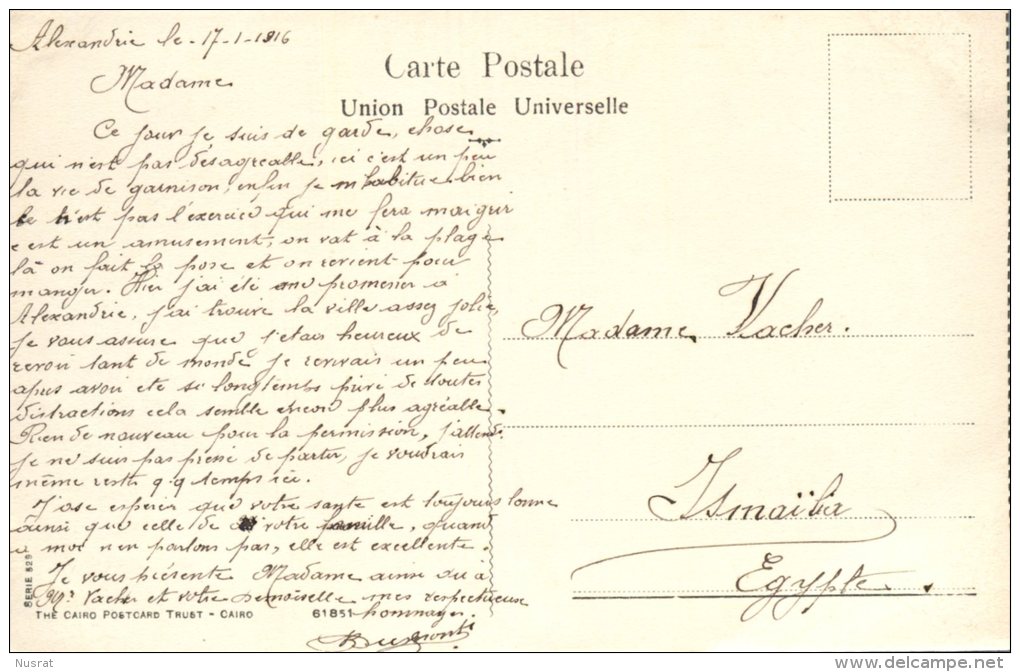 Alexandrie le 17-1-1916
Madame
Ce jour je suis de garde, chose
qui n'est pas désagréable, ici c'est un peu
la vie de garnison, enfin je m'habitue bien
ce n'est pas l'exercice qui me fera maigrir
c'est un amusement, on vat à la plage
là on fait la pose et on revient pour
manger. Hier j'ai été me promener à
Alexandrie, j'ai trouve la ville assez jolie,
je vous assure que j'etais heureux de
revoir tant de monde je revivais un peu
apres avoir ete si longtemps privé de toutes
distractions cela semble encore plus agréable.
Rien de nouveau pour la permission, j'attends.
je ne suis pas pressé de partir, je voudrais
même rester q.q temps ici.
J'ose espérer que votre sante est toujours bonne
ainsi que celle de votre famille, quand
a moi n'en parlons pas, elle est excellente.
Je vous présente Madame ainsi qu'à
Mr Vacher et votre Demoiselle mes respectueux
hommages.
Carte Postale
Union Postale Universelle
Madame Vacher.
Ismaïlia
Egypte.
SERIE 529
THE CAIRO POSTCARD TRUST - CAIRO
61851
Nusrat
delcampe.net